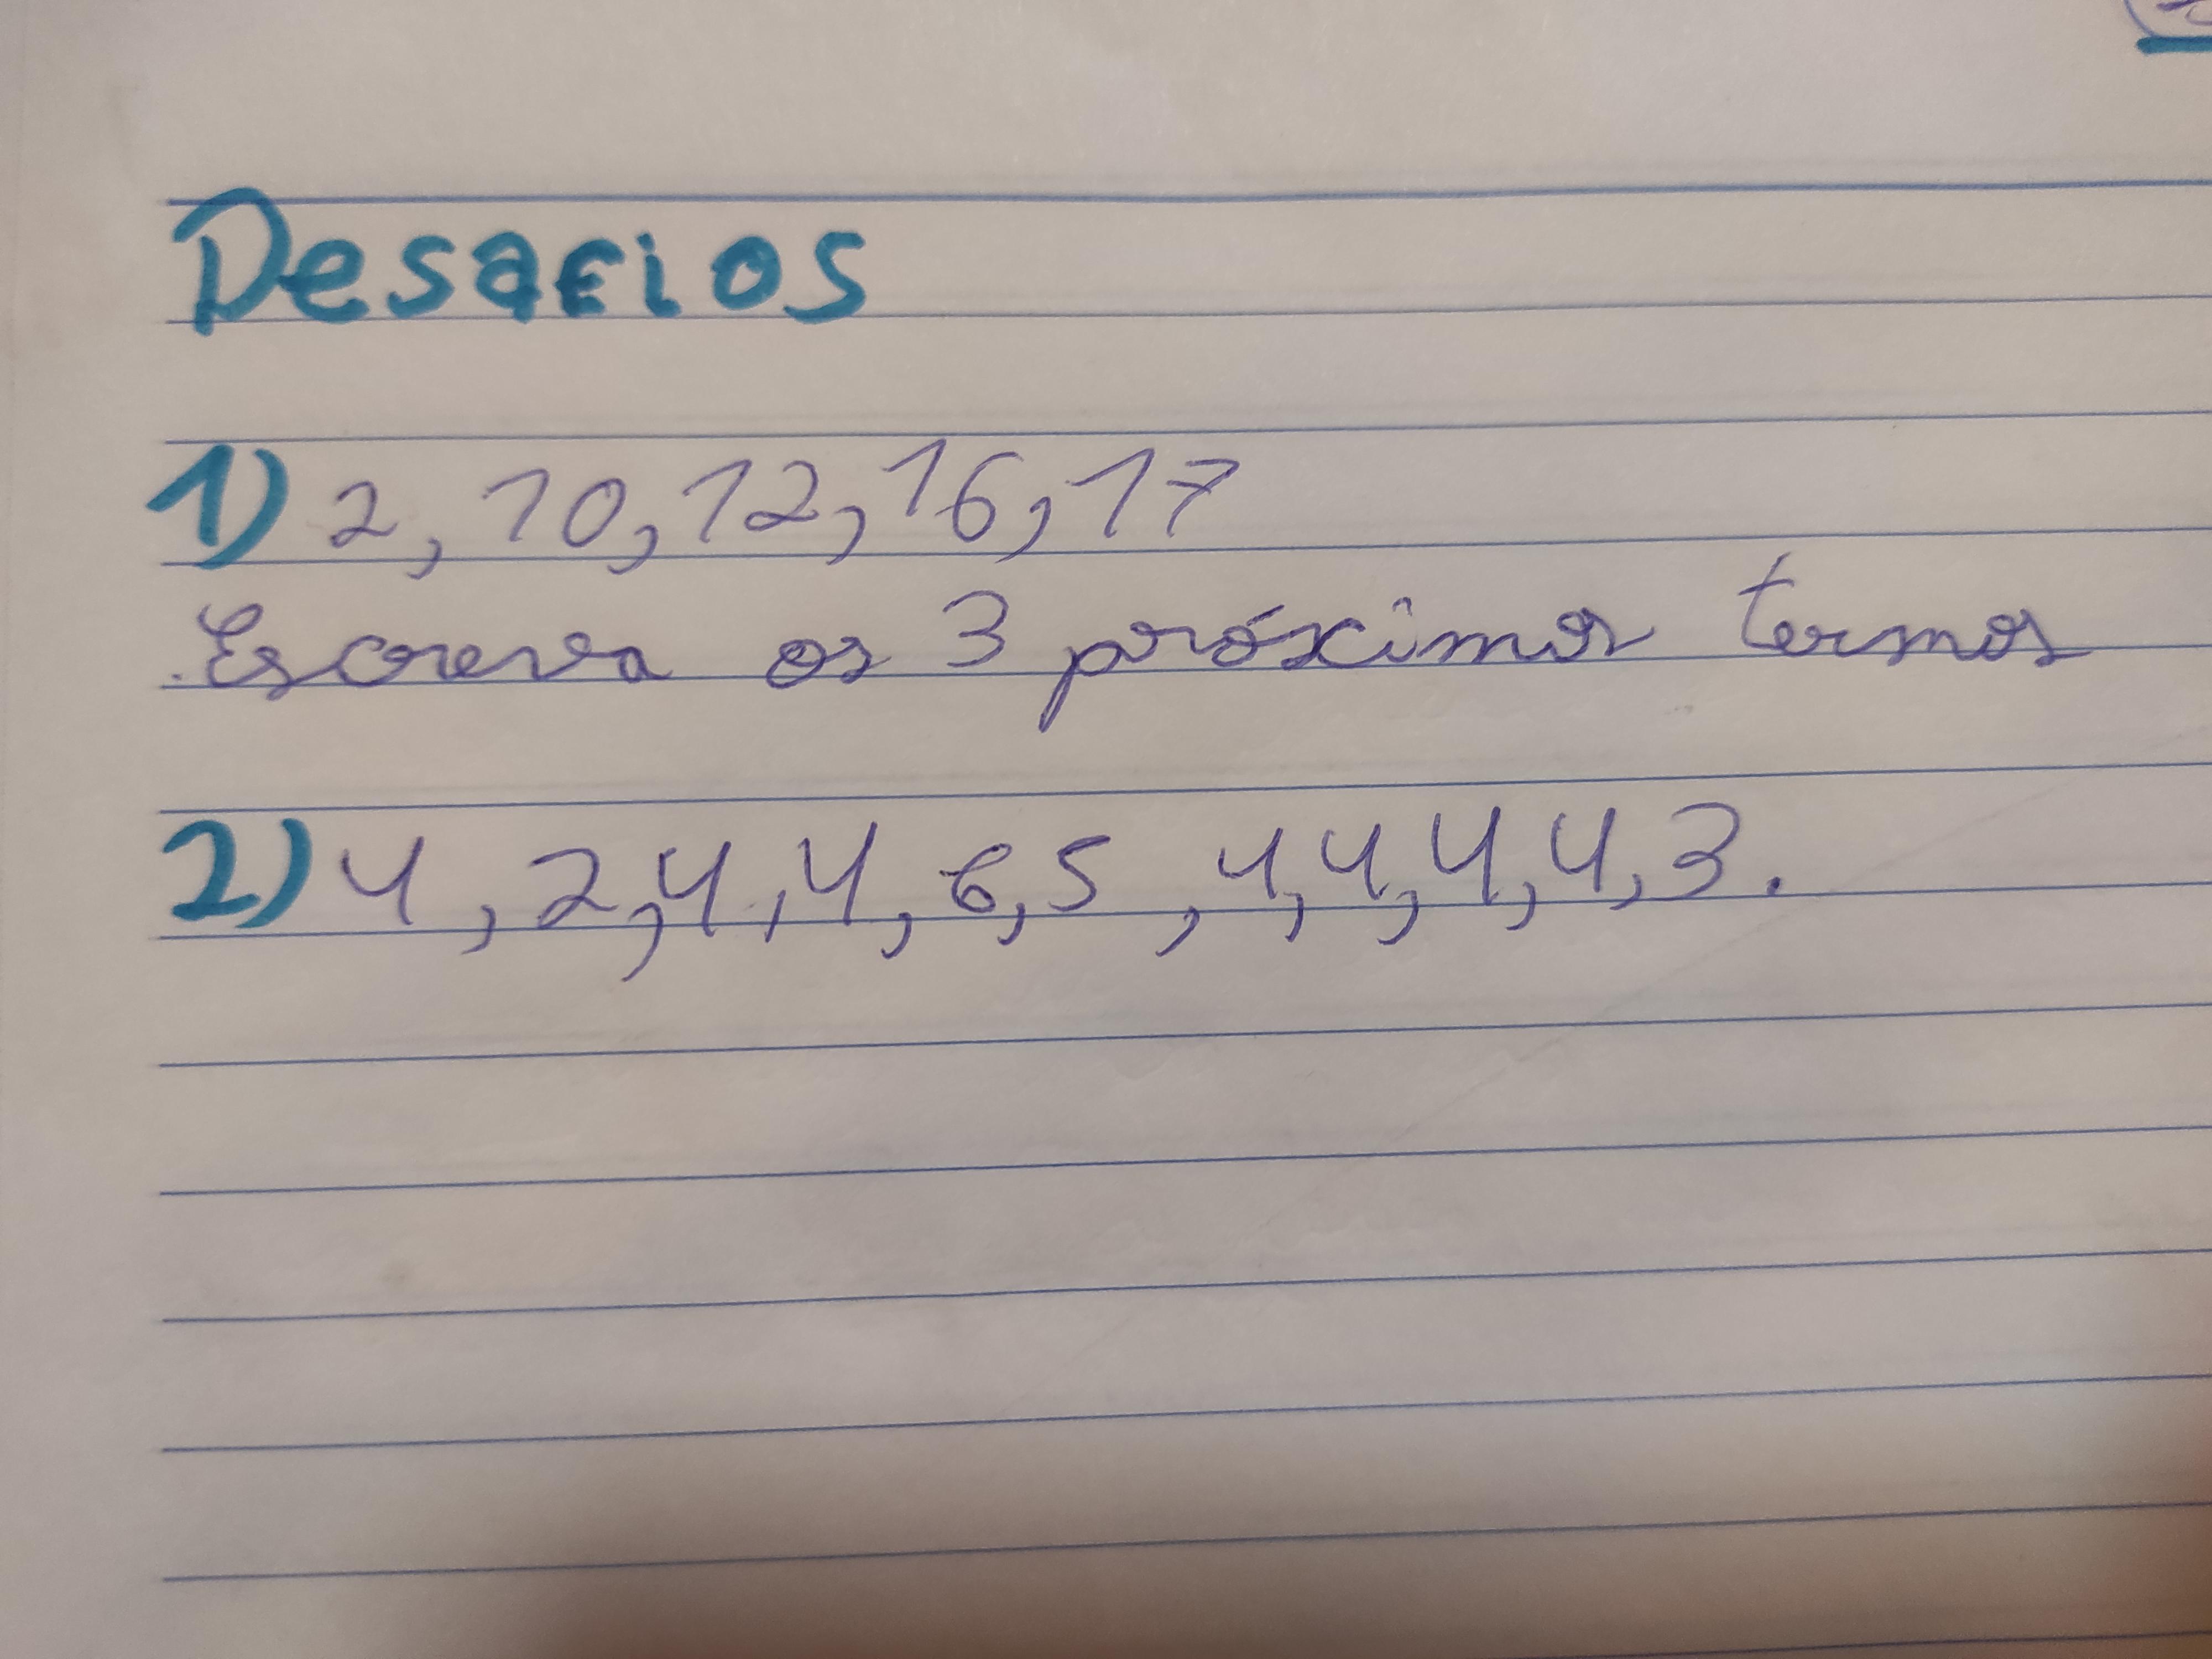 Desafios
1) 2, 10, 12, 16, 17
Escreva os 3 próximos termos
2) 4, 2, 4, 4, 6, 5, 4, 4, 4, 4, 3.